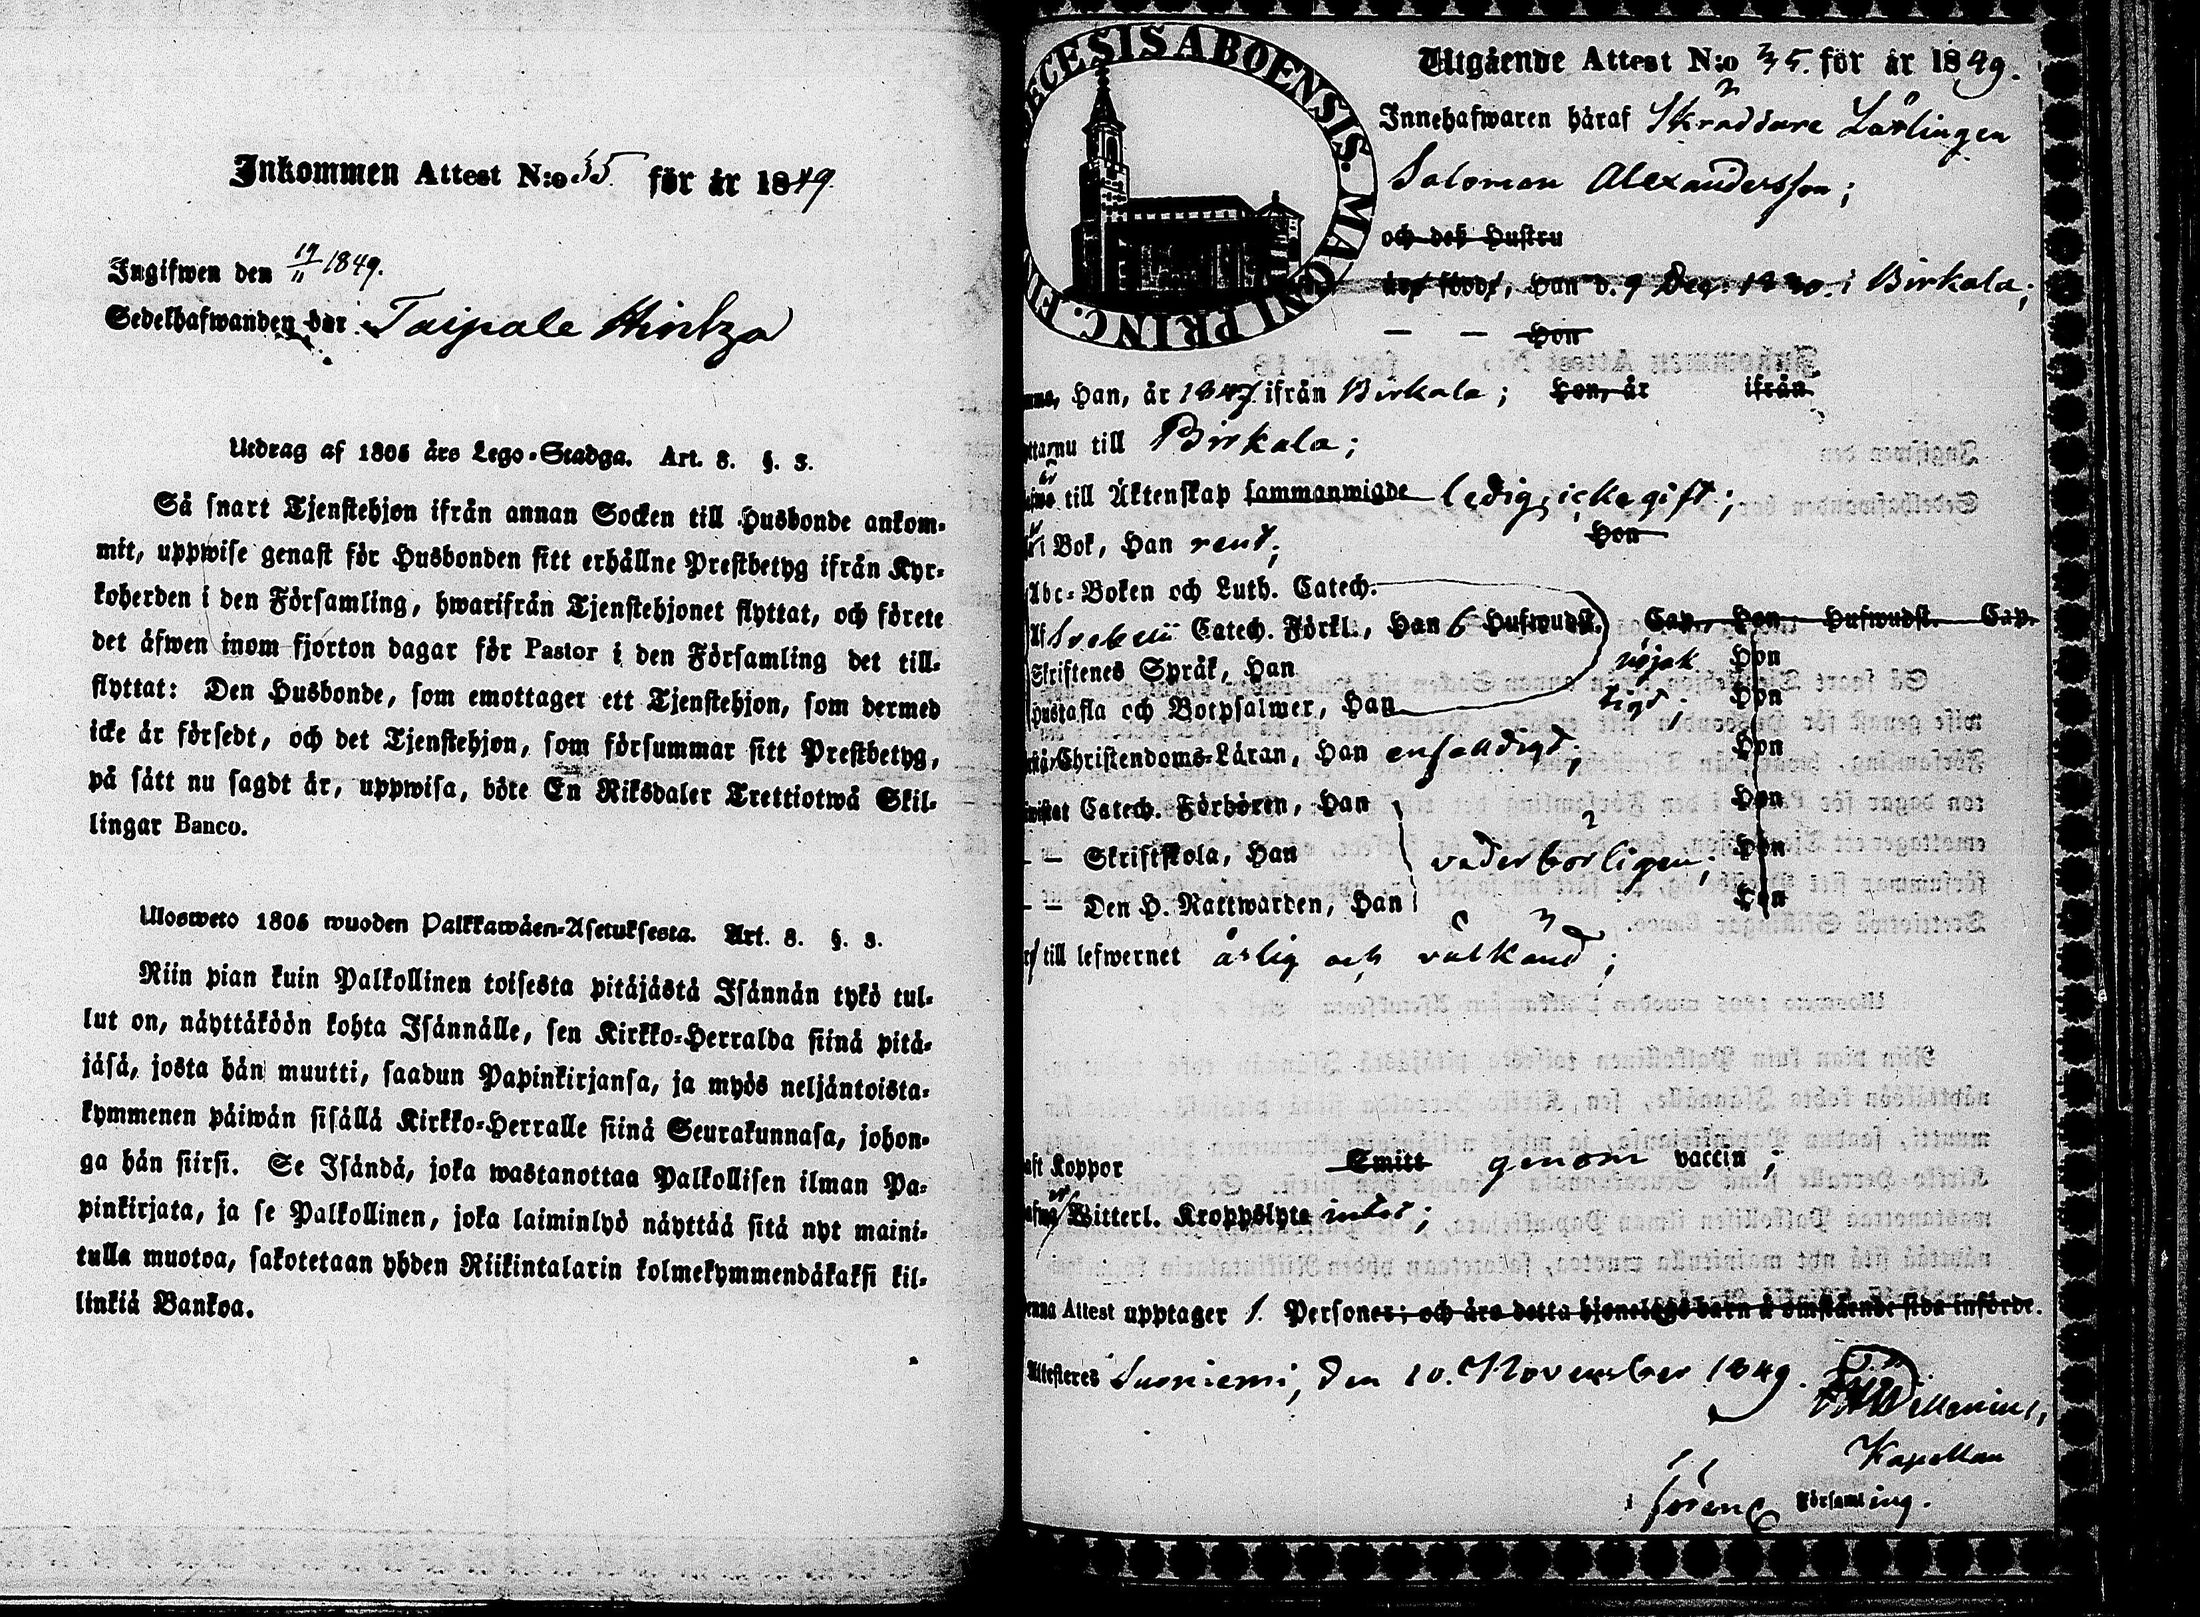 Inkommen Attest N:o 35. för år 1849.
Ingifwen den 17/11 1849.
Sedelhafwanden bor Taipale Hintza
Utdrag af 1805 års Lego-Stadga. Art. 8. §. 3.
Så snart Tjenstehjon ifrån annan Socken till Husbonde ankom-
mit, uppwise genast för Husbonden sitt erhållne Prestbetyg ifrån Kyr-
koherden i den Församling, hwarifrån Tjenstehjonet flyttat, och förete
det äfwen inom fjorton dagar för Pastor i den Församling det till-
flyttat: Den Husbonde, som emottager ett Tjenstehjon, som dermed
icke är försedt, och det Tjenstehjon, som försummar sitt Prestbetyg,
på sätt nu sagdt är, uppwisa, böte En Riksdaler Trettiotwå Skil-
lingar Banco.
Ulosweto 1805 wuoden Palkkawäen-Asetuksesta. Art. 8. §. 3.
Niin pian kuin Palkollinen toisesta pitäjästä Isännän tykö tul-
lut on, näyttäköön kohta Isännälle, sen Kirkko-Herralda siinä pitä-
jäsä, josta hän muutti, saadun Papinkirjansa, ja myös neljäntoista-
kymmenen päiwän sisällä Kirkko-Herralle siinä Seurakunnasa, johon-
ga hän siirsi. Se Isändä, joka wastanottaa Palkollisen ilman Pa-
pinkirjata, ja se Palkollinen, joka laiminlyö näyttää sitä nyt maini-
tulla muotoa, sakotetaan yhden Riikintalarin kolmekymmendäkaksi kil-
linkiä Bankoa.
ECESIS ABOENSIS. MAGNI PRINC. F
Utgående Attest N:o 35. för år 1849.
Innehafwaren häraf Skräddare Lärlingen
Salomon Alexandersson;
och deß Hustru
född, Han d. 9 Dec. 1830. i Birkala;
— — Hon
Han, år 1847 ifrån Birkala; Hon, år ifrån
nu till Birkala;
till Äktenskap sammanwigde ledig, icke gift;
i Bok, Han rent; Hon
Abc-Boken och Luth. Catech.
Af Svebelii Catech. Förkl., Han 6 Hufwudst. Cap., Hon Hufwudst. Cap.
Skriftenes Språk, Han nöjak Hon
Hustafla och Botpsalmer, Han tigt; Hon
Christendoms-Läran, Han enfaldigt; Hon
wistat Catech. Förhören, Han Hon
— — Skriftskola, Han vederbörligen; Hon
— — Den H. Nattwarden, Han Hon
till lefwernet ärlig och välkänd;
aft Koppor Smitt genom vaccin;
Witterl. Kroppslyte intet;
enna Attest upptager 1. Personer; och äro detta hjonelags barn å omstående sida införde.
Attesteres Suoniemi, den 10. November 1849.
Willenius,
Kapellan
i Församling.